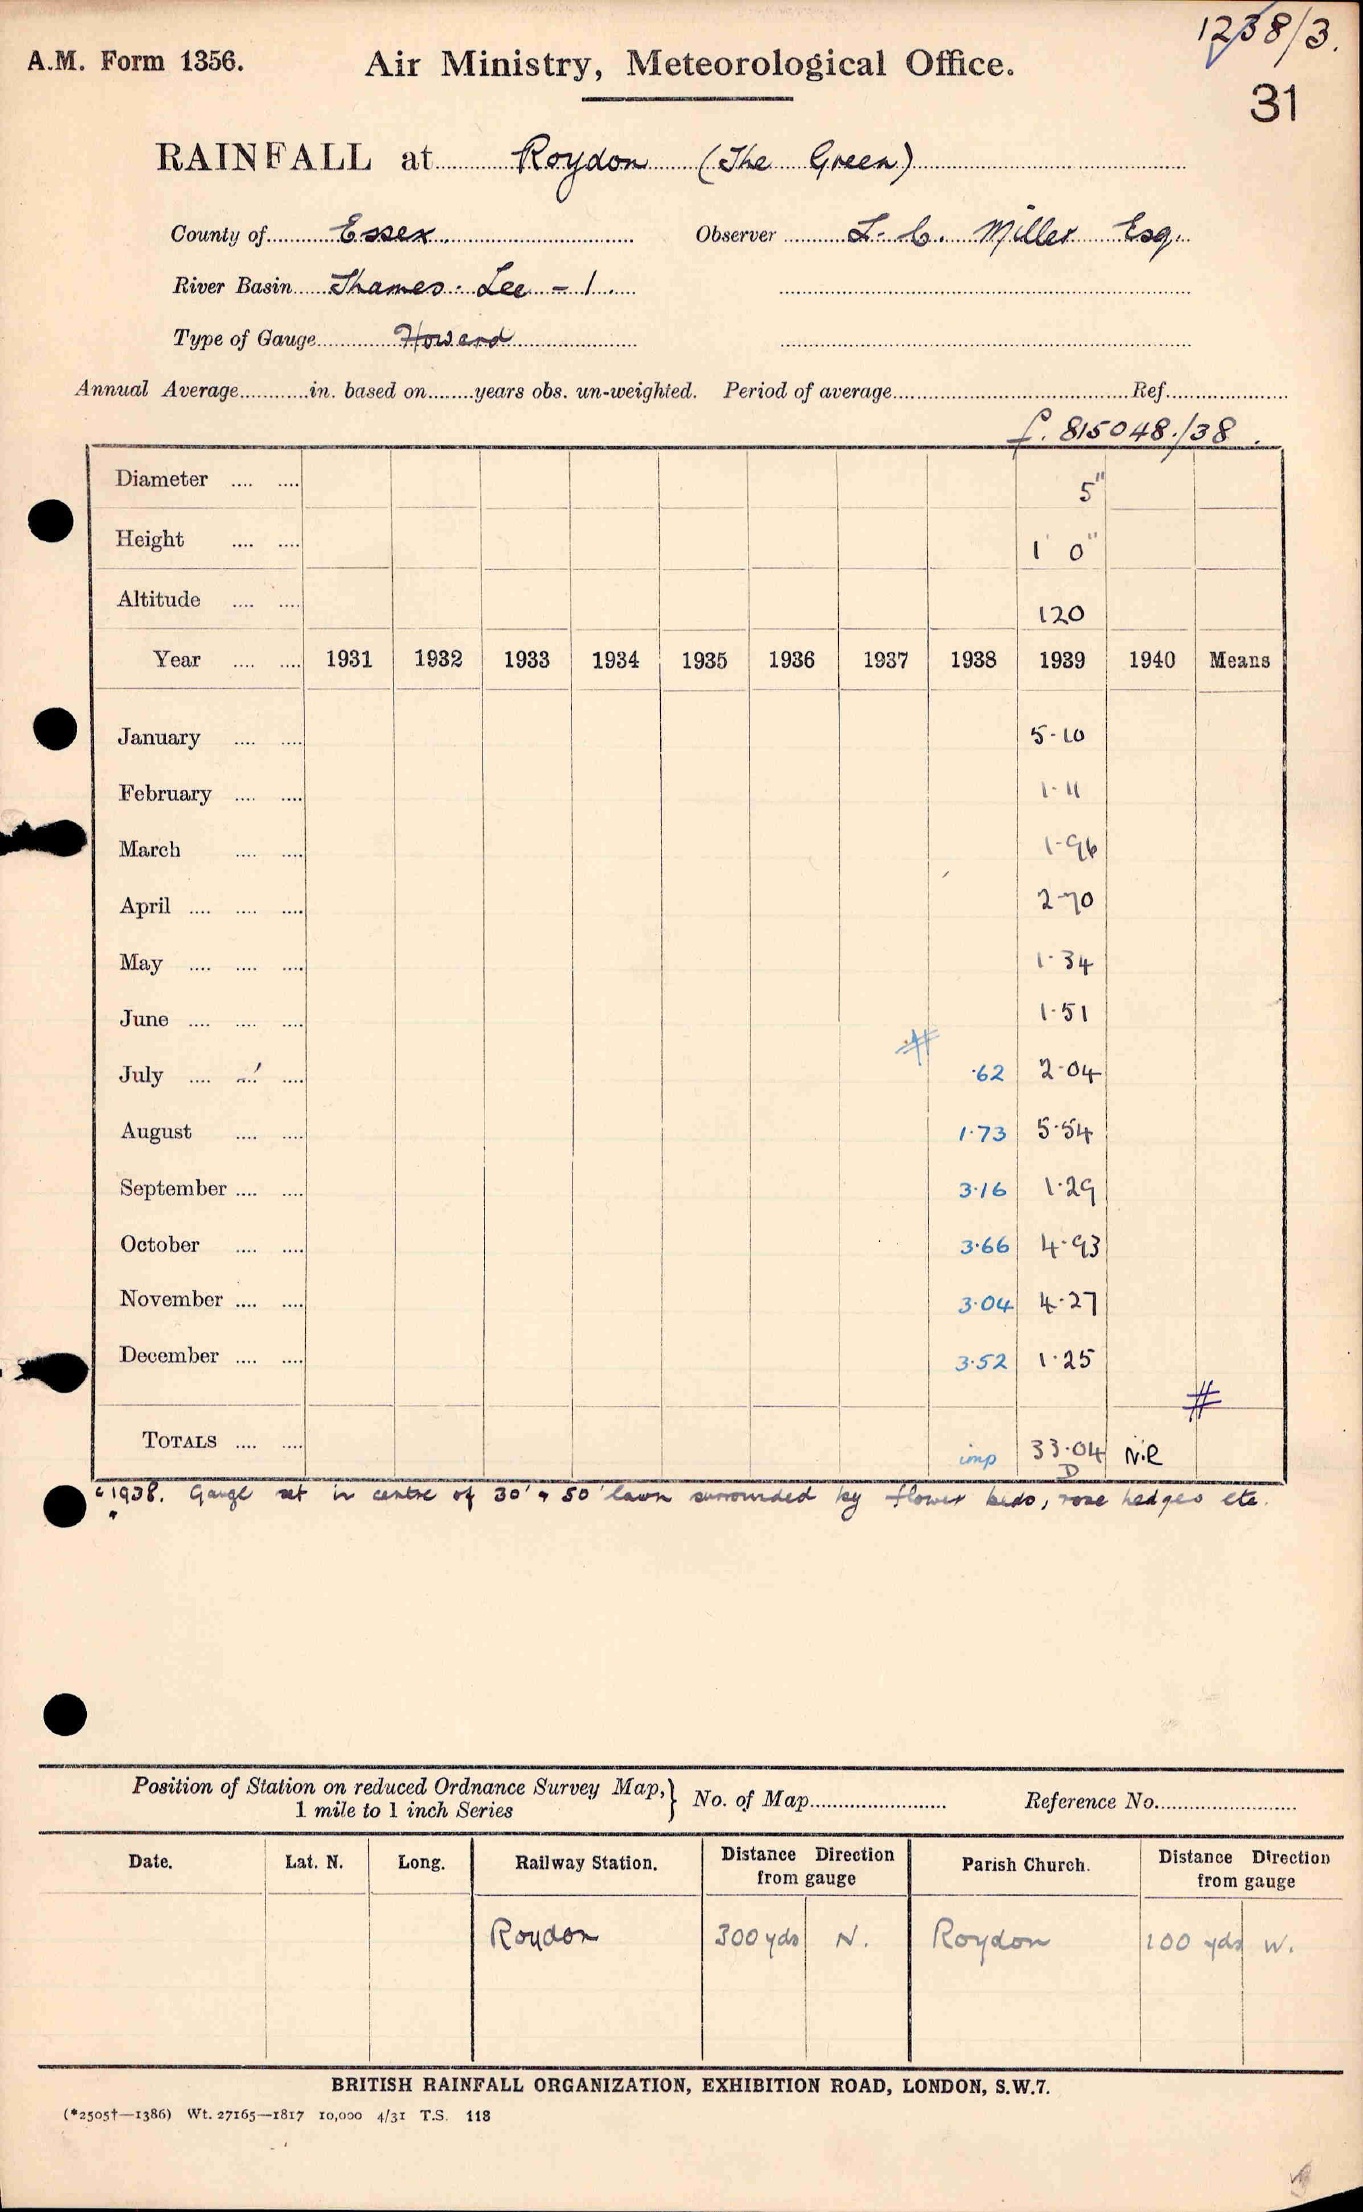 1238/3.
A.M. Form 1356. Air Ministry, Meteorological Office.
31
RAINFALL at Roydon (The Green)
County of Essex Observer L. C. Miller Esq.
River Basin Thames. Lee - 1.
Type of Gauge Howard
Annual Average in. based on years obs. un-weighted. Period of average Ref.
f. 815048./38.
Diameter 5"
Height 1' 0"
Altitude 120
Year 1931 1932 1933 1934 1935 1936 1937 1938 1939 1940 Means
January 5·10
February 1·11
March 1·96
April 2·70
May 1·34
June 1·51
#
July ·62 2·04
August 1·73 5·54
September 3·16 1·29
October 3·66 4·93
November 3·04 4·27
December 3·52 1·25
#
TOTALS imp 33·04 N.R
D
"1938. Gauge set in centre of 30' x 50' lawn surrounded by flower beds, rose hedges etc.
"
Position of Station on reduced Ordnance Survey Map, } No. of Map Reference No.
1 mile to 1 inch Series
Date. Lat. N. Long. Railway Station. Distance Direction from gauge Parish Church. Distance Direction from gauge
Roydon 300 yds N. Roydon 100 yds W.
BRITISH RAINFALL ORGANIZATION, EXHIBITION ROAD, LONDON, S.W.7.
(*2505†—1386) Wt. 27165—1817 10,000 4/31 T.S. 118